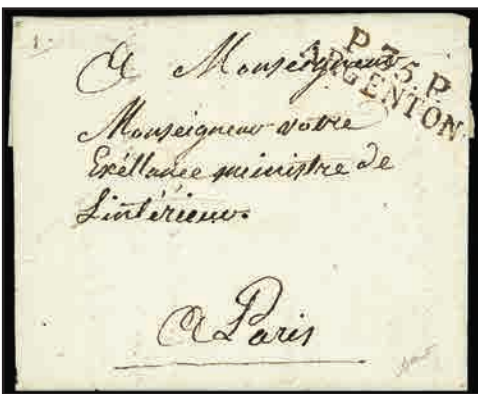 P.35.P
ARGENTON
A Monseigneur
Monseigneur votre
Exéllance ministre de
L'intérieur.
A Paris